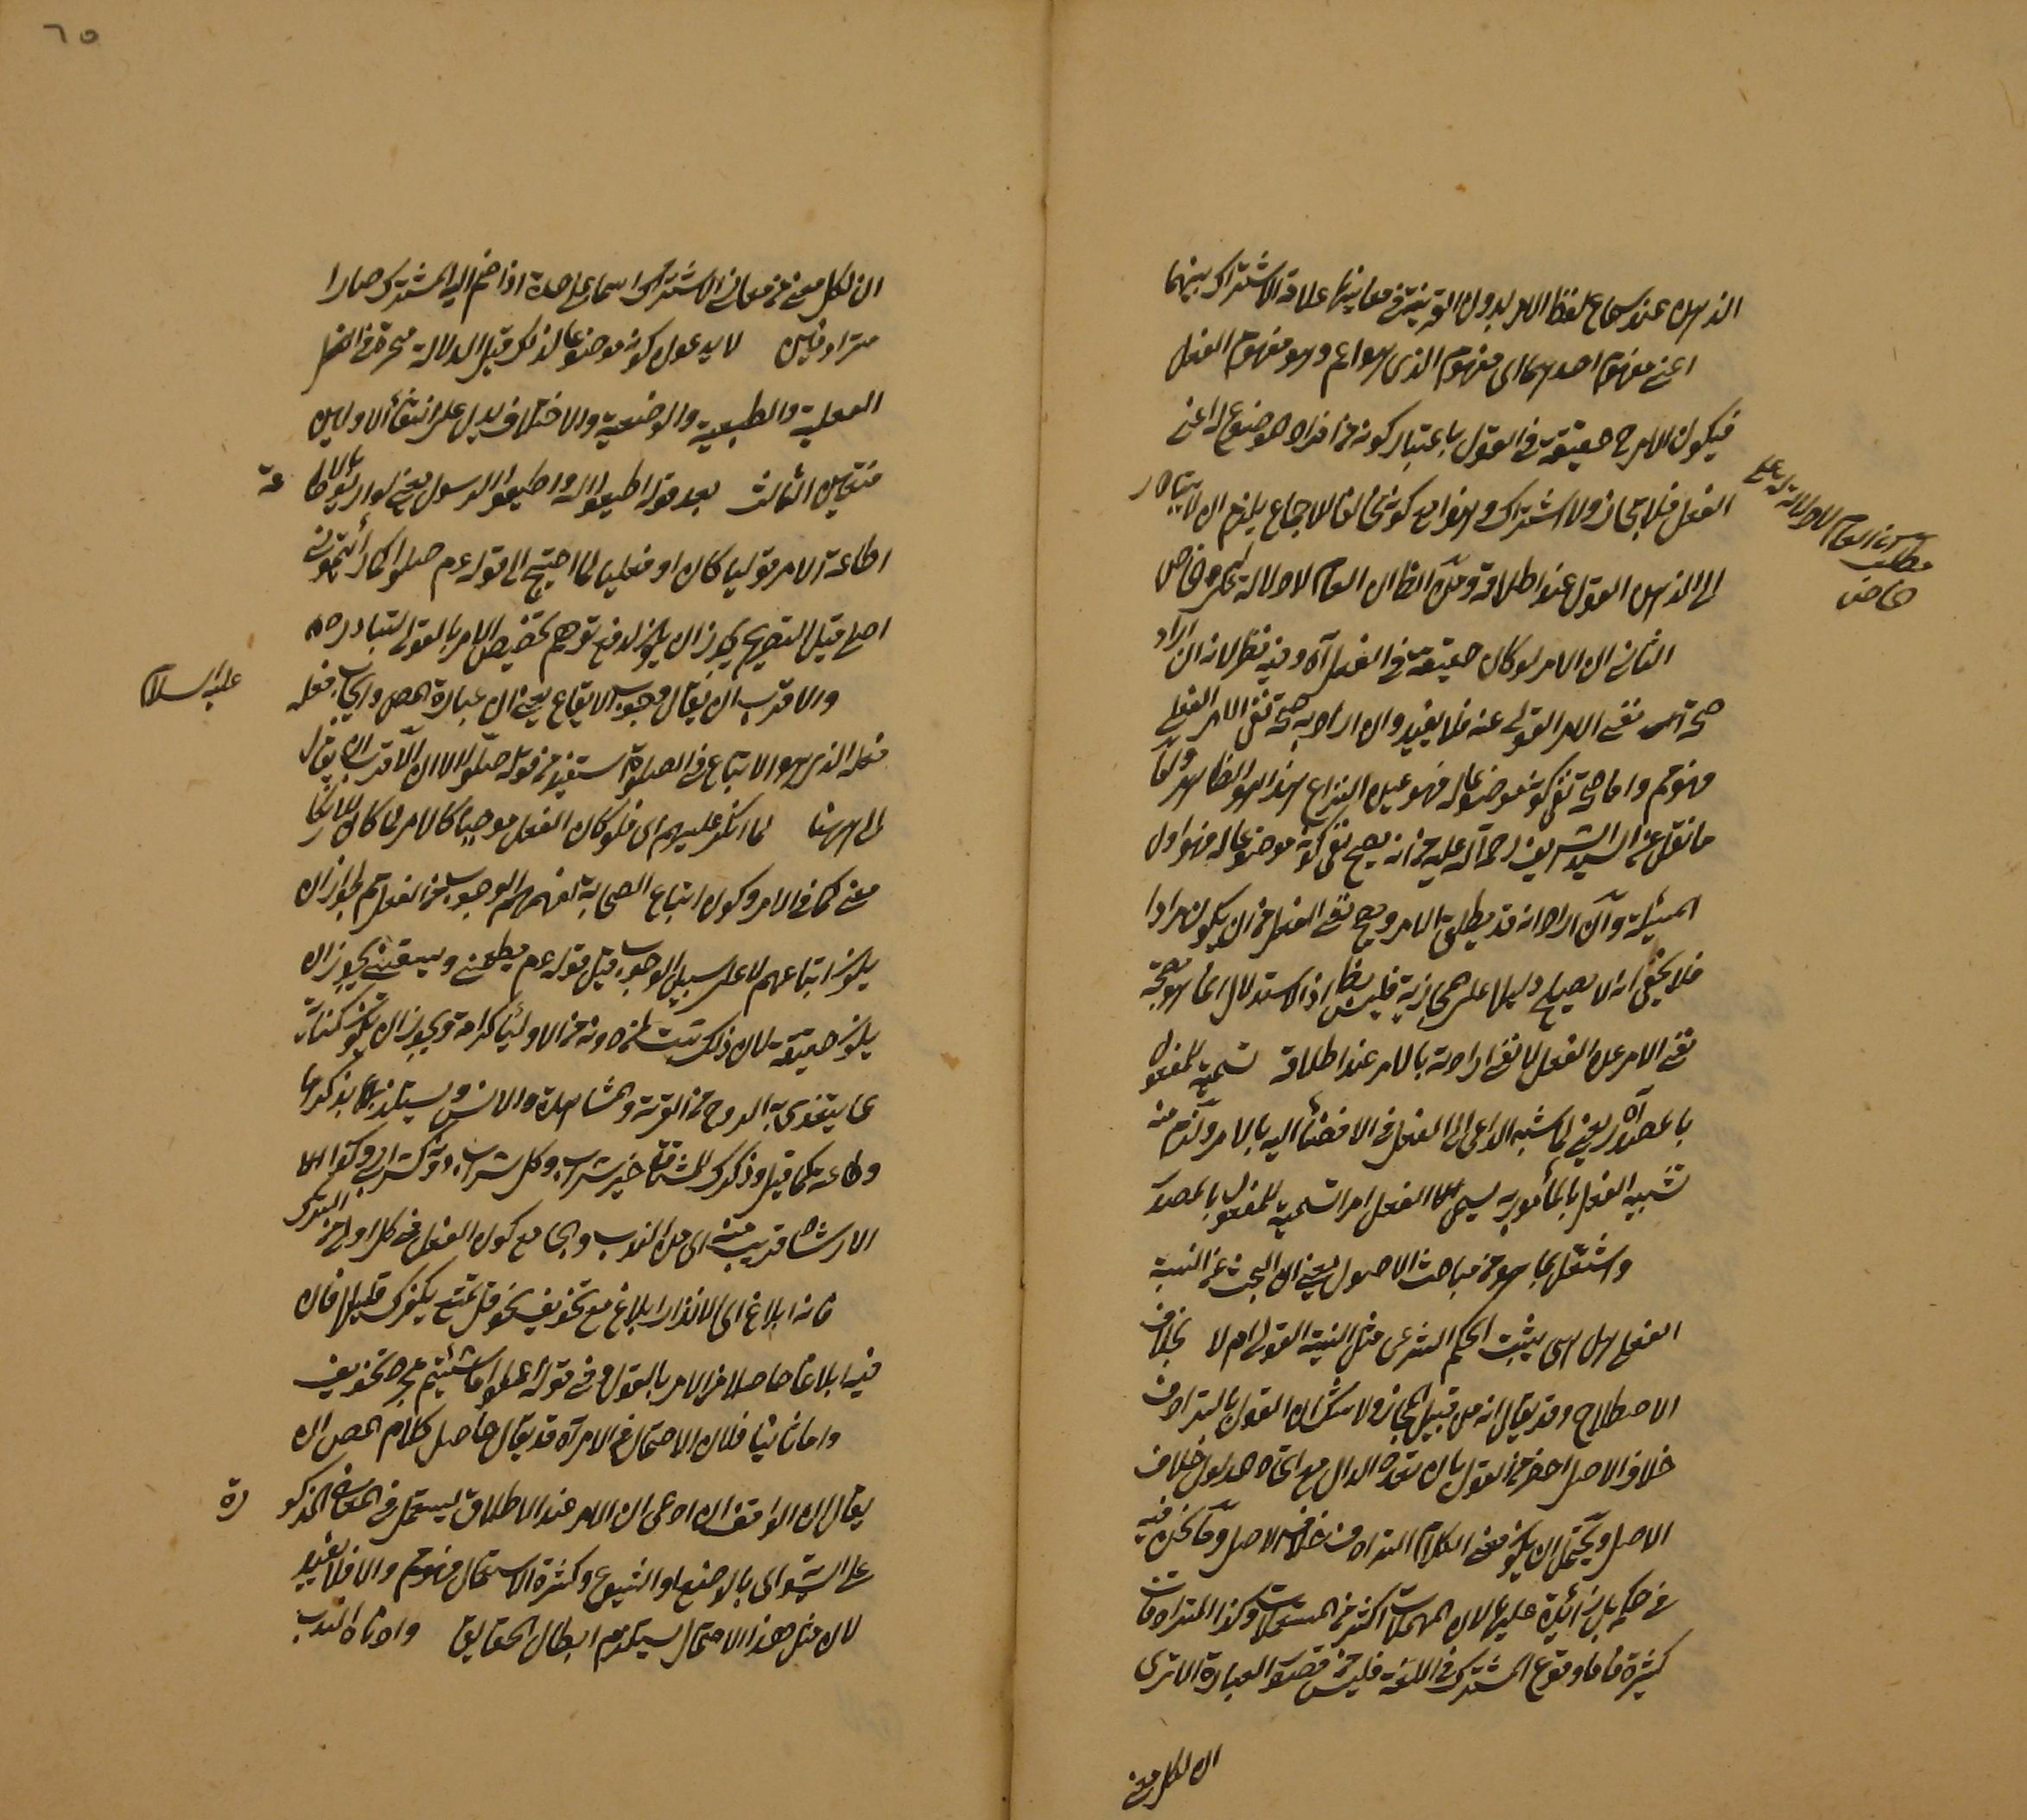 الذهن عند سماع لفظ الامر بدون القرينة في معانيها علامة الاشتراك بينهما
اعني مفهوم احدهما اي مفهوم الذي هو اعم وهو مفهوم الفعل
فيكون الامر حقيقة في القول باعتبار كونه من افراد الموضوع له اعني
الفعل فلا مجاز ولا اشتراك وهذا مع كونه مخالفا للاجماع يلزم ان لا يتبادر
الى الذهن القول عند اطلاقه وذلك لظاهر ان العام لا دلالة له على خاص
مطلب ان العام لا دلالة له على
خاص
الثاني ان الامر لو كان حقيقة في الفعل آه وفيه نظر لانه ان اراد
صحة نفي الامر القولي عنه فلا يفيد وان اراد به صحة نفي الامر الفعلي
فممنوع واما صحة نفي كونه موضوعا له فهو عين النزاع هذا هو الظاهر واما
ما نقل عن السيد الشريف رحمة الله عليه من انه يصح نفي كونه موضوعا له فهو اول
المسئلة وان اراد انه قد يطلق الامر ويصح نفي الفعل من ان يكون مرادا
فلا يخفى انه لا يصلح دليلا على مجازيته فليس بظاهر اذ الاستدلال انما هو بصحة
نفي الامر عن الفعل لا نفي ارادته بالامر عند اطلاقه تسمية للمفعول
بالمصدر آه يعني لما شبه الداعي الى الفعل في الافضاء اليه بالامر ولزم منه
تشبيه الفعل بالمأمور به سمي الفعل امرا تسمية للمفعول بالمصدر
واشتغل بما هو من مباحث الاصول يعني ان البحث عن السنة
الفعلي هل هي يثبت الحكم الشرعي مثل السنة القولي ام لا بخلاف
الاصطلاح وقد يقال انه من قبيل المجاز ولا شك ان القول بالترادف
خلاف الاصل احترز من القول بان تعدد الدال مع اتحاد المدلول خلاف
الاصل ويحتمل ان يكون معنى الكلام الترادف خلاف الاصل وما نحن فيه
في حكمه بل زائدة عليها لان المهملات اكثر من المستعملات وكذا المترادفات
كثيرة فاما وقوع المشترك في اللغة فليس من قصور العبارة الا ترى
ان لكل معنى
٦٥
ان لكل معنى من معاني المشترك اسما على حدة اذا ضم اليه المشترك صارا
مترادفين لا يدعون كونه موضوعا لذلك قيل الدلالة منحصرة في
العقلية والطبيعية والوضعية والاختلاف يدل على انتفاء الاولين
فتعين الثالث بعد قوله اطيعوا الله واطيعوا الرسول يعني لو اريد بالاطاعة
اطاعة الامر قوليا كان او فعليا لما احتيج الى قوله عم صلوا كما رأيتموني
اصلي قيل التصريح يجوز ان يكون لدفع توهم تخصيص الامر بالقول لتبادره
والاقرب ان يقال وجوب الاتباع يعني ان عبارة المص وايجاب فعله عليه السلام
فعله الذي هو الاتباع في الصلوة استفيد من قوله صلوا الا ان الاقرب ان يقال
الى ههنا لما انكر عليهم اي فلو كان الفعل موجبا كالامر لما كان للانكار
معنى كما في الامر وكون اتباع الصحابة لفهمهم الوجوب من الفعل ثم لجواز ان
يكون اتباعهم لا على سبيل الوجوب قيل قوله عم يطعمني ويسقيني يجوز ان
يكون حقيقة لان ذلك يثبت لمن دونه من الاولياء كرامة ويجوز ان يكون كناية
عما يتقوى به الروح من القربة والمشاهدة والانس ويستلذ بذكرها
وطاعته كما قيل وذكرك للمشتاق خير شراب وكل شراب دونه كسراب
الارشاد قريب منه اي من الندب والجامع كون الفعل في كل اولى من الترك
فانه ابلاغ اي الانذار ابلاغ مع تخويف نحو قل تمتع بكفرك قليلا فان
فيه ابلاغا حاصلا من الامر بالقول وفي قوله اعملوا ما شئتم مجرد تخويف
واما ثانيا فلان الاحتمال في الامر آه قد يقال حاصل كلام المص ان
يقال ان الواقف ان ادعى ان الامر عند الاطلاق يستعمل في المعاني المذكورة
على السواء بالوضع او الشيوع وكثرة الاستعمال فممنوع والا فلا يفيد
لان مثل هذا الاحتمال يستلزم ابطال الحقايق وادناه الندب